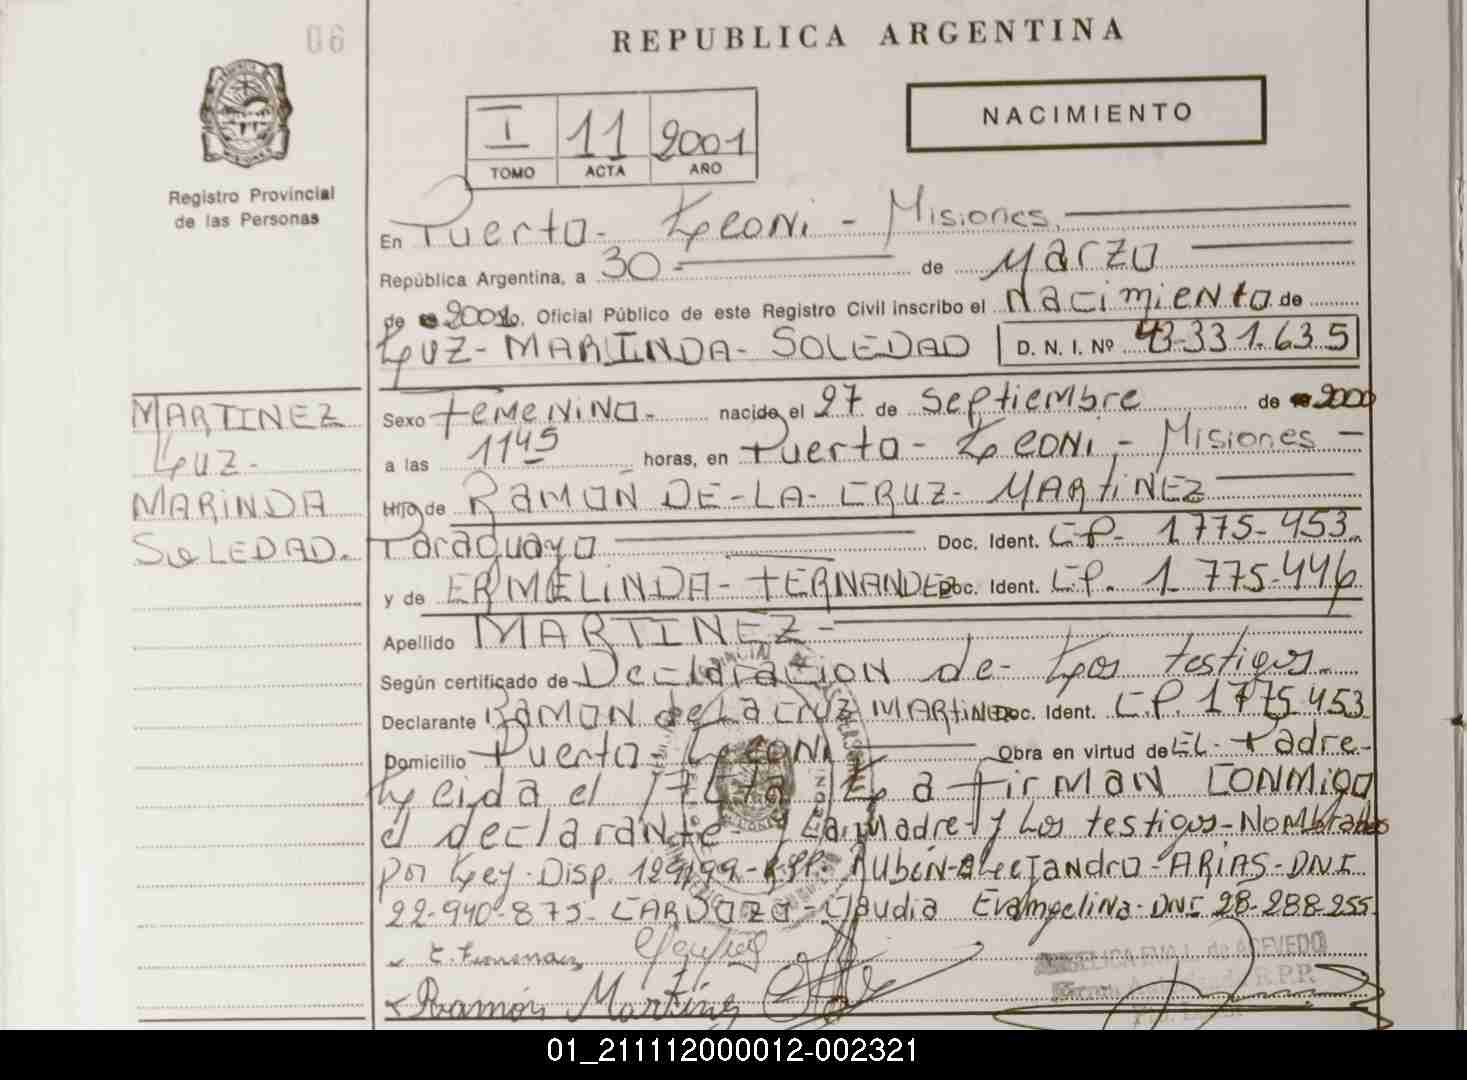 06
REPUBLICA ARGENTINA
NACIMIENTO
I 11 2001
TOMO ACTA AÑO
Registro Provincial
de las Personas
En Puerto - Leoni - Misiones,
República Argentina, a 30 de Marzo
de 2001. Oficial Público de este Registro Civil inscribo el Nacimiento de
LUZ - MARINDA - SOLEDAD D. N. I. Nº 43.331.635
MARTINEZ
LUZ -
MARINDA
SOLEDAD.
Sexo Femenino. nacida el 27 de Septiembre de 2000
a las 1145 horas, en Puerto - Leoni - Misiones -
Hijo de RAMON DE - LA - CRUZ - MARTINEZ
Paraguayo Doc. Ident. C.P. 1775-453
y de ERMELINDA - FERNANDEZ Doc. Ident. C.P. 1 775-446
Apellido MARTINEZ -
Según certificado de Declaracion de - Los testigos
Declarante RAMON de La CRUZ MARTINEZ Doc. Ident. C.P. 1775 453
Domicilio Puerto Leoni Obra en virtud de EL - Padre -
Leida el Acta La Firman CONMIGO
el declarante - La Madre - y Los testigos - Nombrados
por Ley - Disp. 129/99 - R.P.P. RUBEN - ALEJANDRO - ARIAS - DNI
22-940-875 - CARDOZO - Claudia Evangelina - DNI 28-288-255
Ramón Martinez
ANGELICA EVA L. de ACEVEDO
R.P.P.
01_211112000012-002321